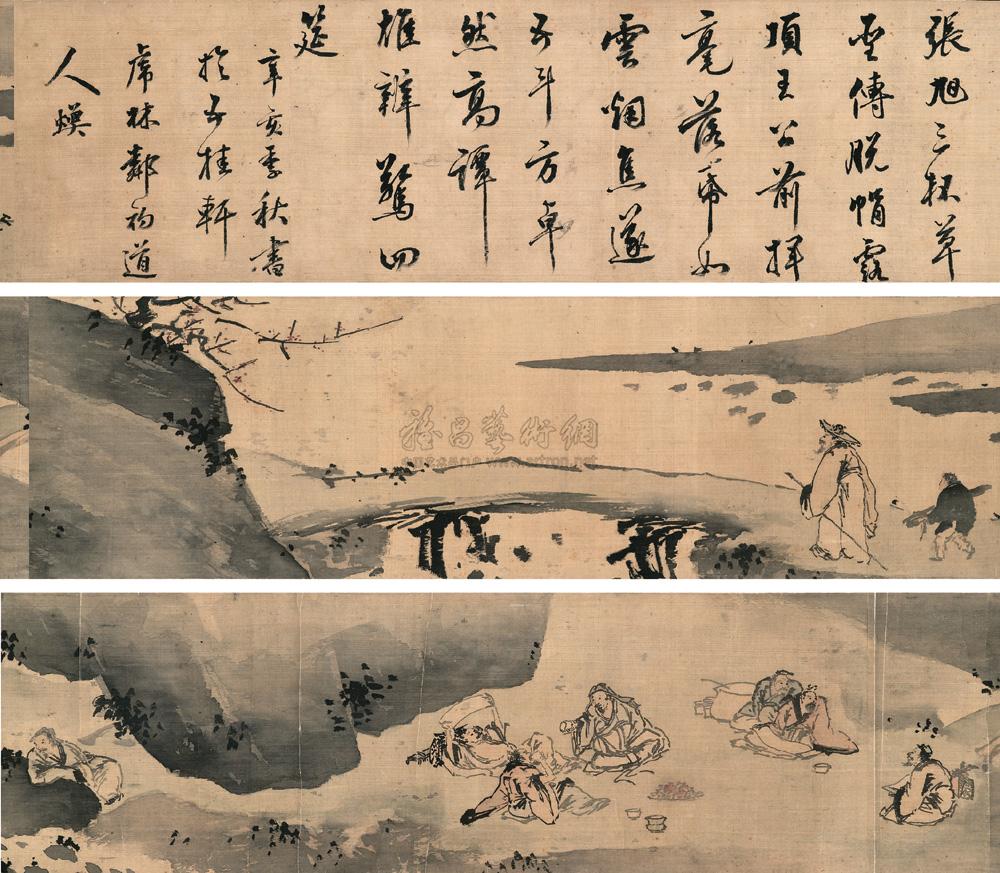 張旭三杯草
聖傳脫帽露
頂王公前揮
毫落帋如
雲烟焦遂
五斗方卓
然高譚
雄辯驚四
筵
辛亥季秋書
於五桂軒
虎林鄰初道
人煐